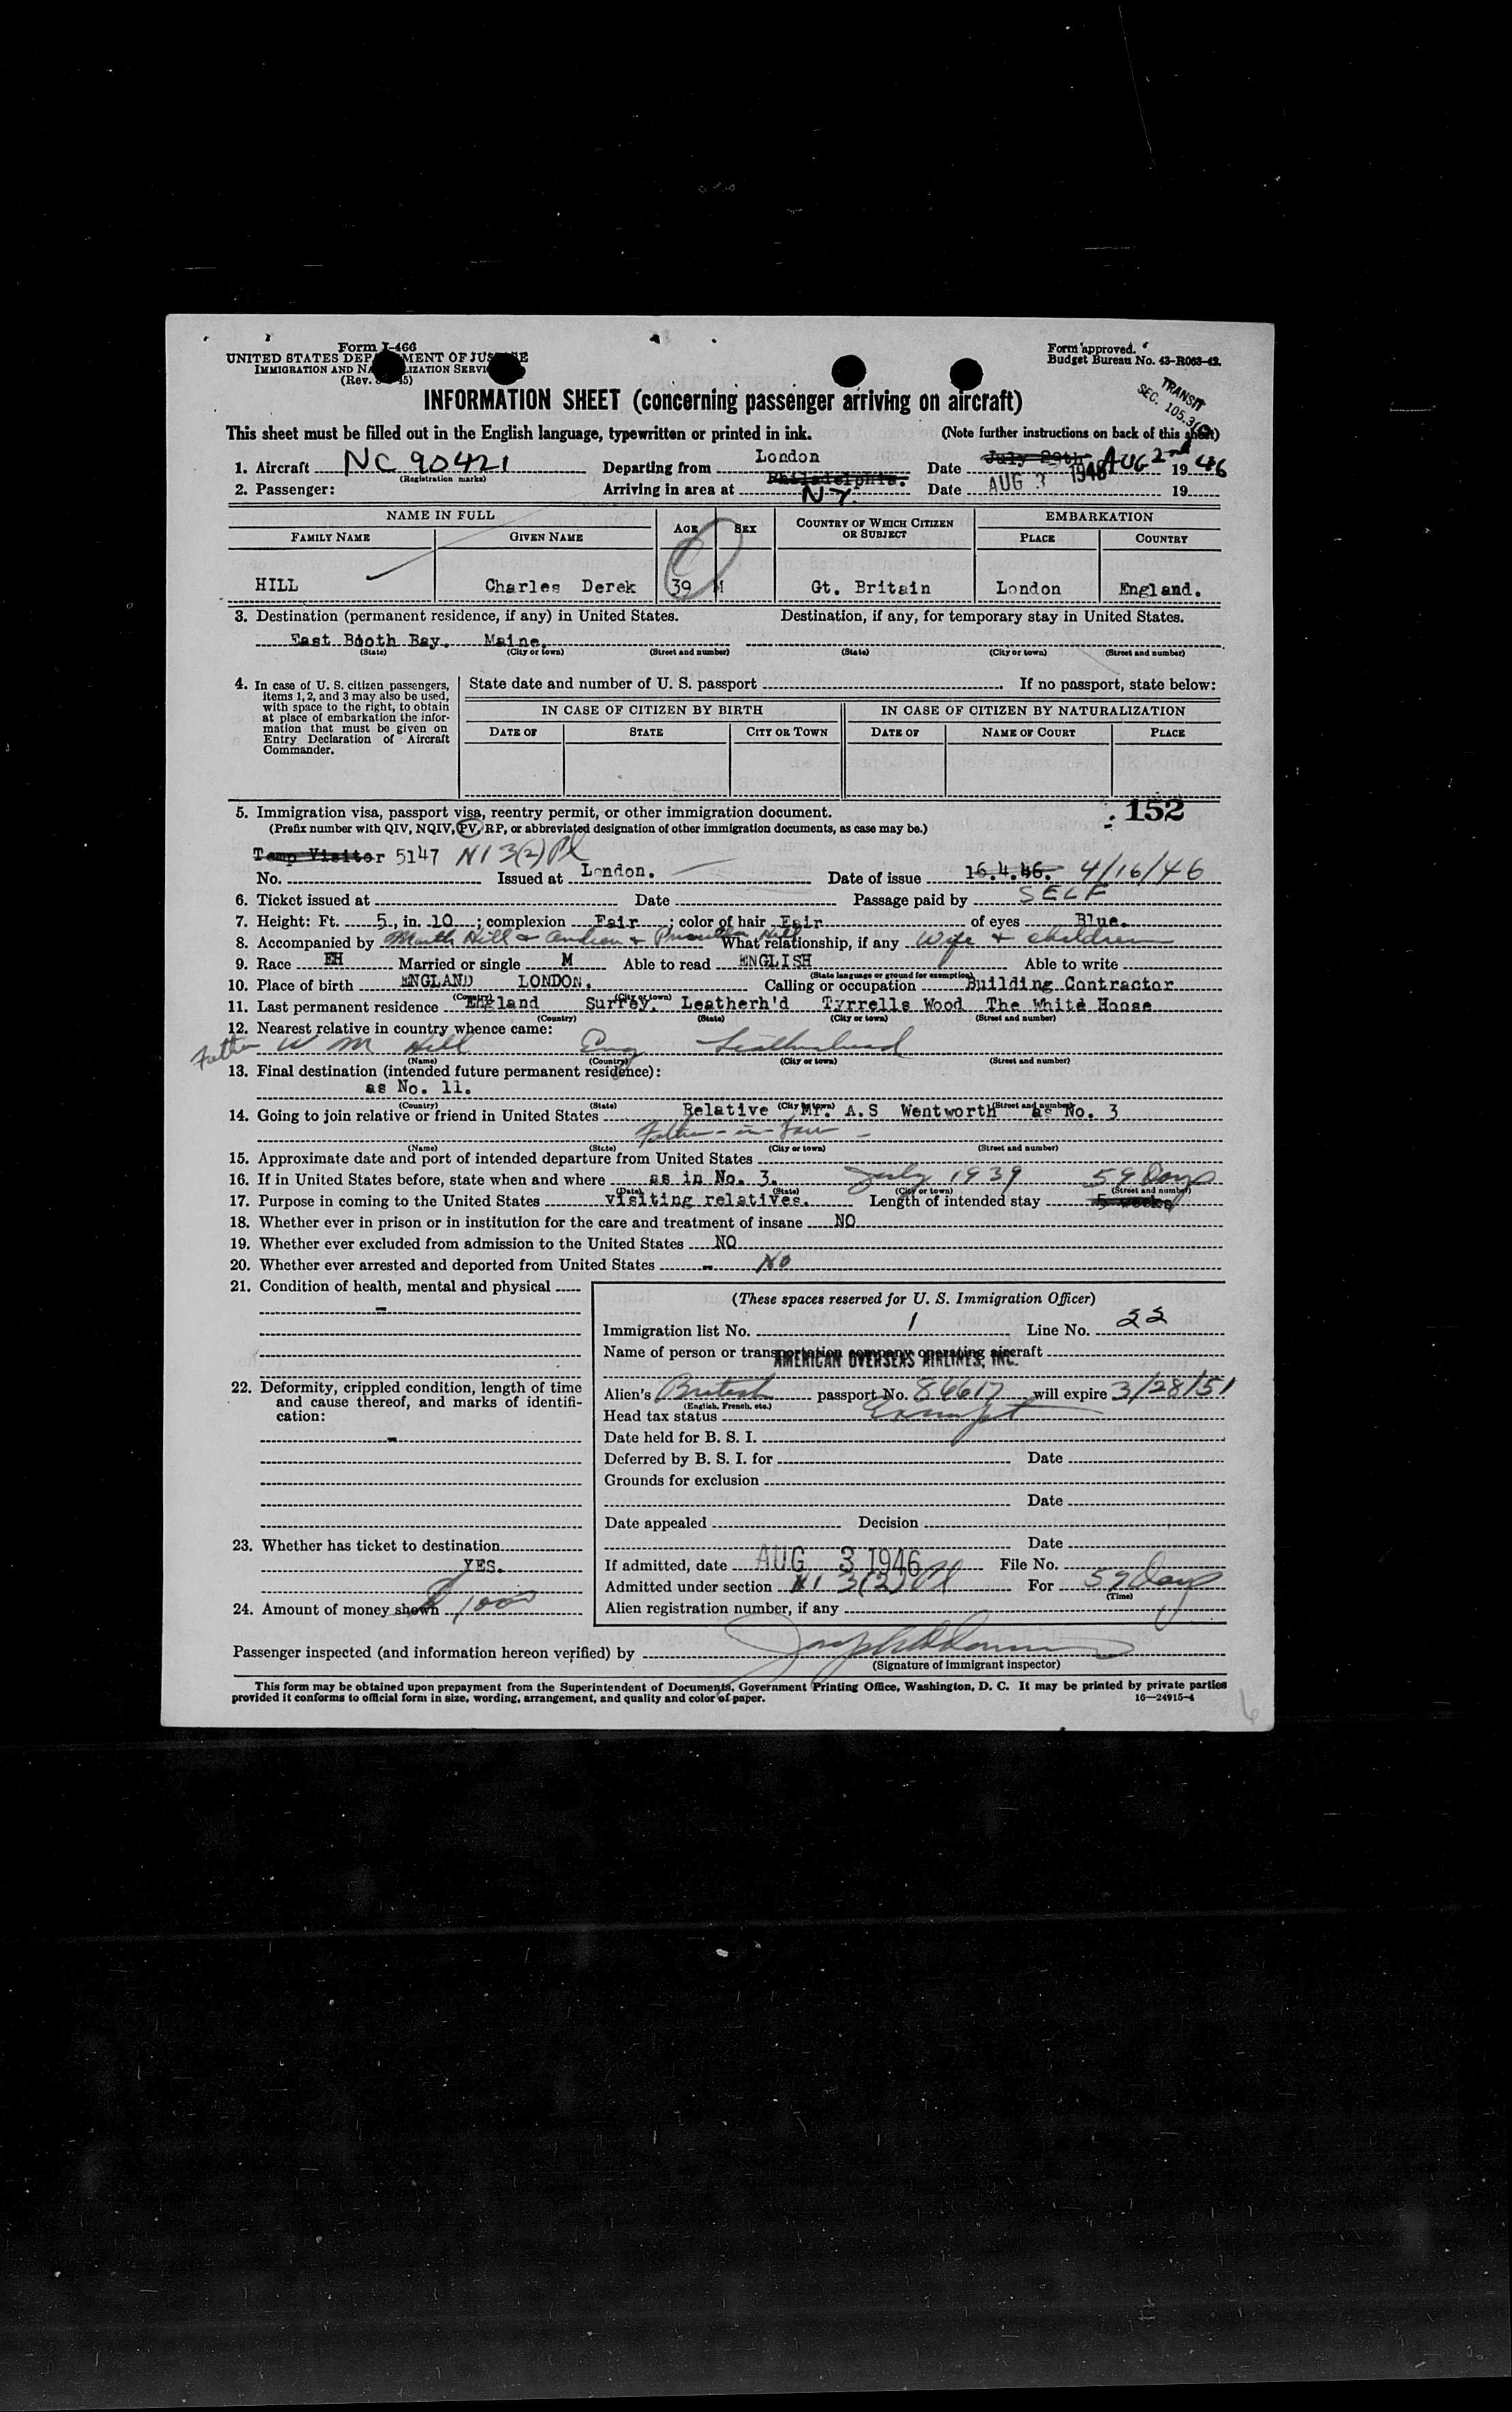 Form I-466
UNITED STATES DEP MENT OF JUS
IMMIGRATION AND NA LIZATION SERVI
(Rev. 45)
Form approved.
Budget Bureau No. 43-R063-42.
TRANSIT
SEC. 105.3
INFORMATION SHEET (concerning passenger arriving on aircraft)
This sheet must be filled out in the English language, typewritten or printed in ink. (Note further instructions on back of this sheet)
1. Aircraft NC 90421 Departing from London Date July 29th AUG 2nd 1946
(Registration marks)
2. Passenger: Arriving in area at Philadelphia. N.Y. Date AUG 3 1946 19
NAME IN FULL AGE SEX COUNTRY OF WHICH CITIZEN OR SUBJECT EMBARKATION
FAMILY NAME GIVEN NAME PLACE COUNTRY
HILL Charles Derek 39 M Gt. Britain London England.
3. Destination (permanent residence, if any) in United States. Destination, if any, for temporary stay in United States.
East Booth Bay. Maine.
(State) (City or town) (Street and number) (State) (City or town) (Street and number)
4. In case of U. S. citizen passengers, items 1, 2, and 3 may also be used, with space to the right, to obtain at place of embarkation the information that must be given on Entry Declaration of Aircraft Commander.
State date and number of U. S. passport If no passport, state below:
IN CASE OF CITIZEN BY BIRTH IN CASE OF CITIZEN BY NATURALIZATION
DATE OF STATE CITY OR TOWN DATE OF NAME OF COURT PLACE
5. Immigration visa, passport visa, reentry permit, or other immigration document. 152
(Prefix number with QIV, NQIV, PV, RP, or abbreviated designation of other immigration documents, as case may be.)
Temp Visitor 5147 NI 3(2) Pl
No. Issued at London. Date of issue 16.4.46. 4/16/46
6. Ticket issued at Date Passage paid by SELF
7. Height: Ft. 5, in. 10; complexion Fair; color of hair Fair of eyes Blue.
8. Accompanied by Hill & Andrew & Priscilla Hill What relationship, if any Wife + children
9. Race EH Married or single M Able to read ENGLISH Able to write
(State language or ground for exemption)
10. Place of birth ENGLAND LONDON. Calling or occupation Building Contractor
(Country) (City or town)
11. Last permanent residence England Surrey. Leatherh'd Tyrrells Wood The White Hoose
(Country) (State) (City or town) (Street and number)
12. Nearest relative in country whence came:
Father W M Hill Eng Leatherhead
(Name) (Country) (City or town) (Street and number)
13. Final destination (intended future permanent residence):
as No. 11.
(Country) (State) (City or town) (Street and number)
14. Going to join relative or friend in United States Relative Mr. A.S Wentworth as No. 3
Father-in-Law
(Name) (State) (City or town) (Street and number)
15. Approximate date and port of intended departure from United States
16. If in United States before, state when and where as in No. 3. July 1939 59 Days
(Date) (State) (City or town) (Street and number)
17. Purpose in coming to the United States visiting relatives. Length of intended stay 5 weeks
18. Whether ever in prison or in institution for the care and treatment of insane NO
19. Whether ever excluded from admission to the United States NO
20. Whether ever arrested and deported from United States - No
21. Condition of health, mental and physical
-
22. Deformity, crippled condition, length of time and cause thereof, and marks of identification:
-
23. Whether has ticket to destination
YES.
24. Amount of money shown $1000
(These spaces reserved for U. S. Immigration Officer)
Immigration list No. 1 Line No. 22
Name of person or transportation company operating aircraft
AMERICAN OVERSEAS AIRLINES, INC.
Alien's British passport No. 86617 will expire 3/28/51
(English, French, etc.)
Head tax status Exempt
Date held for B. S. I.
Deferred by B. S. I. for Date
Grounds for exclusion
Date
Date appealed Decision
Date
If admitted, date AUG 3 1946 File No.
Admitted under section NI 3(2) Pl For 59 Days
(Time)
Alien registration number, if any
Passenger inspected (and information hereon verified) by
(Signature of immigrant inspector)
This form may be obtained upon prepayment from the Superintendent of Documents, Government Printing Office, Washington, D. C. It may be printed by private parties
provided it conforms to official form in size, wording, arrangement, and quality and color of paper. 16—24915-4
6